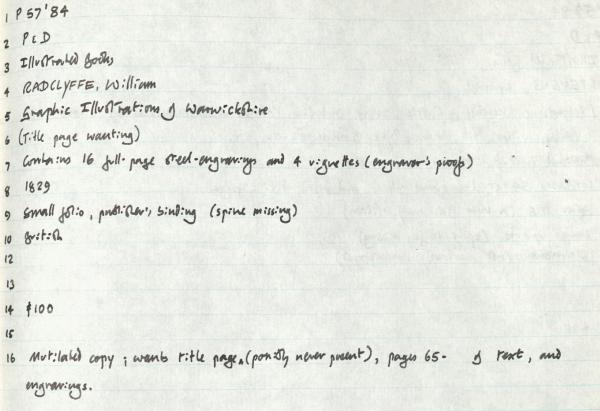 1 P 57'84
2 P&D
3 Illustrated books
4 RADCLYFFE, William
5 Graphic Illustrations of Warwickshire
6 (Title page wanting)
7 Contains 16 full-page steel-engravings and 4 vignettes (engraver's proofs)
8 1829
9 Small folio, publisher's binding (spine missing)
10 British
12
13
14 $100
15
16 Mutilated copy; wants title page (possibly never present), pages 65- of text, and
engravings.